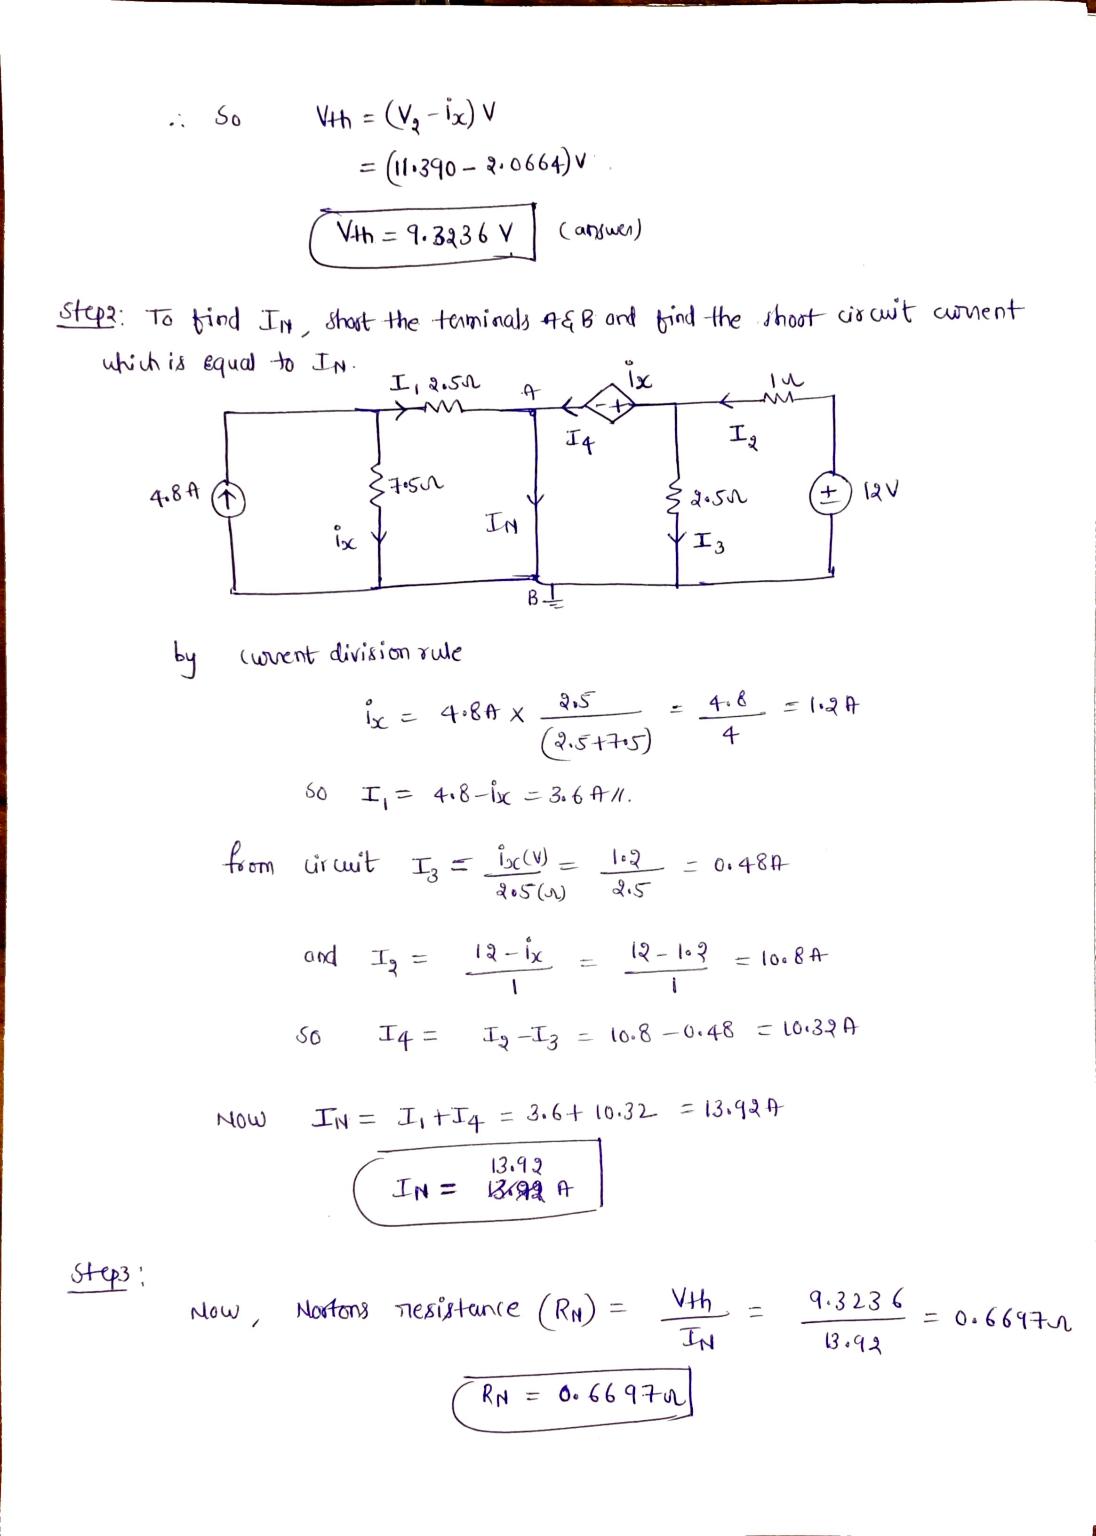 ∴ So Vth = (V₂ - ix) V
= (11.390 - 2.0664) V
Vth = 9.3236 V (answer)
Step2: To find IN, short the terminals A & B and find the short circuit current
which is equal to IN.
I₁ 2.5Ω A ix 1Ω
- + I₄ I₂
4.8A 7.5Ω 2.5Ω + - 12V
ix IN I₃
B
by current division rule
ix = 4.8A × 2.5/(2.5+7.5) = 4.8/4 = 1.2A
So I₁ = 4.8 - ix = 3.6 A //.
from circuit I₃ = ix(V)/2.5(Ω) = 1.2/2.5 = 0.48A
and I₂ = 12 - ix/1 = 12 - 1.2/1 = 10.8A
So I₄ = I₂ - I₃ = 10.8 - 0.48 = 10.32A
Now IN = I₁ + I₄ = 3.6 + 10.32 = 13.92A
13.92
IN = A
Step3:
Now, Nortons resistance (RN) = Vth/IN = 9.3236/13.92 = 0.6697Ω
RN = 0.6697Ω